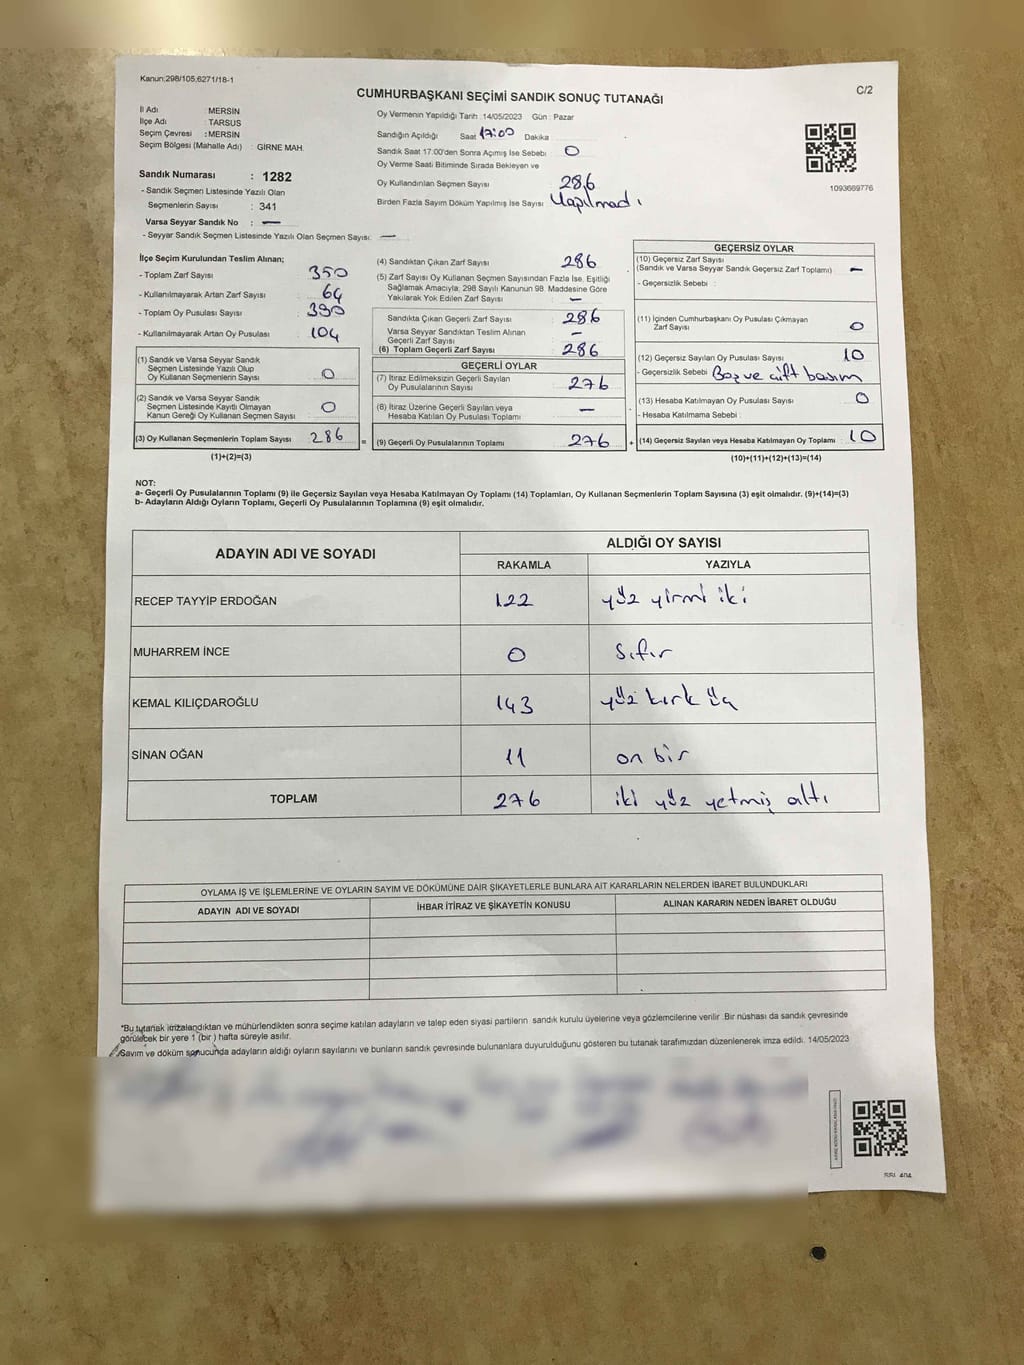 Kanun;298/105,6271/18-1
C/2
CUMHURBAŞKANI SEÇİMİ SANDIK SONUÇ TUTANAĞI
İl Adı : MERSİN
İlçe Adı : TARSUS
Seçim Çevresi : MERSİN
Seçim Bölgesi (Mahalle Adı) : GİRNE MAH.
Oy Vermenin Yapıldığı Tarih :14/05/2023 Gün : Pazar
Sandığın Açıldığı Saat 17:00 Dakika
Sandık Saat 17:00'den Sonra Açımış İse Sebebi 0
Oy Verme Saati Bitiminde Sırada Bekleyen ve
Oy Kullandırılan Seçmen Sayısı 286
Birden Fazla Sayım Döküm Yapılmış İse Sayısı Yapılmadı
1093669776
Sandık Numarası : 1282
- Sandık Seçmen Listesinde Yazılı Olan
Seçmenlerin Sayısı : 341
Varsa Seyyar Sandık No : —
- Seyyar Sandık Seçmen Listesinde Yazılı Olan Seçmen Sayısı: —
İlçe Seçim Kurulundan Teslim Alınan;
- Toplam Zarf Sayısı 350
- Kullanılmayarak Artan Zarf Sayısı 64
- Toplam Oy Pusulası Sayısı 390
- Kullanılmayarak Artan Oy Pusulası 104
(1) Sandık ve Varsa Seyyar Sandık
Seçmen Listesinde Yazılı Olup
Oy Kullanan Seçmenlerin Sayısı 0
(2) Sandık ve Varsa Seyyar Sandık
Seçmen Listesinde Kayıtlı Olmayan
Kanun Gereği Oy Kullanan Seçmen Sayısı 0
(3) Oy Kullanan Seçmenlerin Toplam Sayısı 286 =
(1)+(2)=(3)
(4) Sandıktan Çıkan Zarf Sayısı 286
(5) Zarf Sayısı Oy Kullanan Seçmen Sayısından Fazla İse, Eşitliği
Sağlamak Amacıyla, 298 Sayılı Kanunun 98. Maddesine Göre
Yakılarak Yok Edilen Zarf Sayısı —
Sandıkta Çıkan Geçerli Zarf Sayısı 286
Varsa Seyyar Sandıktan Teslim Alınan
Geçerli Zarf Sayısı —
(6) Toplam Geçerli Zarf Sayısı 286
GEÇERLİ OYLAR
(7) İtiraz Edilmeksizin Geçerli Sayılan
Oy Pusulalarının Sayısı 276
(8) İtiraz Üzerine Geçerli Sayılan veya
Hesaba Katılan Oy Pusulası Toplamı —
(9) Geçerli Oy Pusulalarının Toplamı 276 +
GEÇERSİZ OYLAR
(10) Geçersiz Zarf Sayısı
(Sandık ve Varsa Seyyar Sandık Geçersiz Zarf Toplamı) —
- Geçersizlik Sebebi :
(11) İçinden Cumhurbaşkanı Oy Pusulası Çıkmayan
Zarf Sayısı 0
(12) Geçersiz Sayılan Oy Pusulası Sayısı 10
- Geçersizlik Sebebi Boş ve çift basım
(13) Hesaba Katılmayan Oy Pusulası Sayısı 0
- Hesaba Katılmama Sebebi
(14) Geçersiz Sayılan veya Hesaba Katılmayan Oy Toplamı 10
(10)+(11)+(12)+(13)=(14)
NOT:
a- Geçerli Oy Pusulalarının Toplamı (9) ile Geçersiz Sayılan veya Hesaba Katılmayan Oy Toplamı (14) Toplamları, Oy Kullanan Seçmenlerin Toplam Sayısına (3) eşit olmalıdır. (9)+(14)=(3)
b- Adayların Aldığı Oyların Toplamı, Geçerli Oy Pusulalarının Toplamına (9) eşit olmalıdır.
ADAYIN ADI VE SOYADI
ALDIĞI OY SAYISI
RAKAMLA YAZIYLA
RECEP TAYYİP ERDOĞAN 122 yüz yirmi iki
MUHARREM İNCE 0 Sıfır
KEMAL KILIÇDAROĞLU 143 yüz kırk üç
SİNAN OĞAN 11 on bir
TOPLAM 276 iki yüz yetmiş altı
OYLAMA İŞ VE İŞLEMLERİNE VE OYLARIN SAYIM VE DÖKÜMÜNE DAİR ŞİKAYETLERLE BUNLARA AİT KARARLARIN NELERDEN İBARET BULUNDUKLARI
ADAYIN ADI VE SOYADI İHBAR İTİRAZ VE ŞİKAYETİN KONUSU ALINAN KARARIN NEDEN İBARET OLDUĞU
*Bu tutanak imzalandıktan ve mühürlendikten sonra seçime katılan adayların ve talep eden siyasi partilerin sandık kurulu üyelerine veya gözlemcilerine verilir. Bir nüshası da sandık çevresinde
görülecek bir yere 1 (bir) hafta süreyle asılır.
Sayım ve döküm sonucunda adayların aldığı oyların sayılarını ve bunların sandık çevresinde bulunanlara duyurulduğunu gösteren bu tutanak tarafımızdan düzenlenerek imza edildi. 14/05/2023